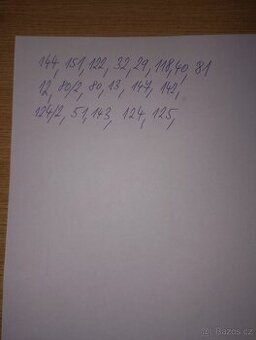 144, 151, 122, 32, 29, 118, 40, 81
12, 80/2, 80, 13, 147, 142,
124/2, 51, 143, 124, 125,
© Bazos.cz